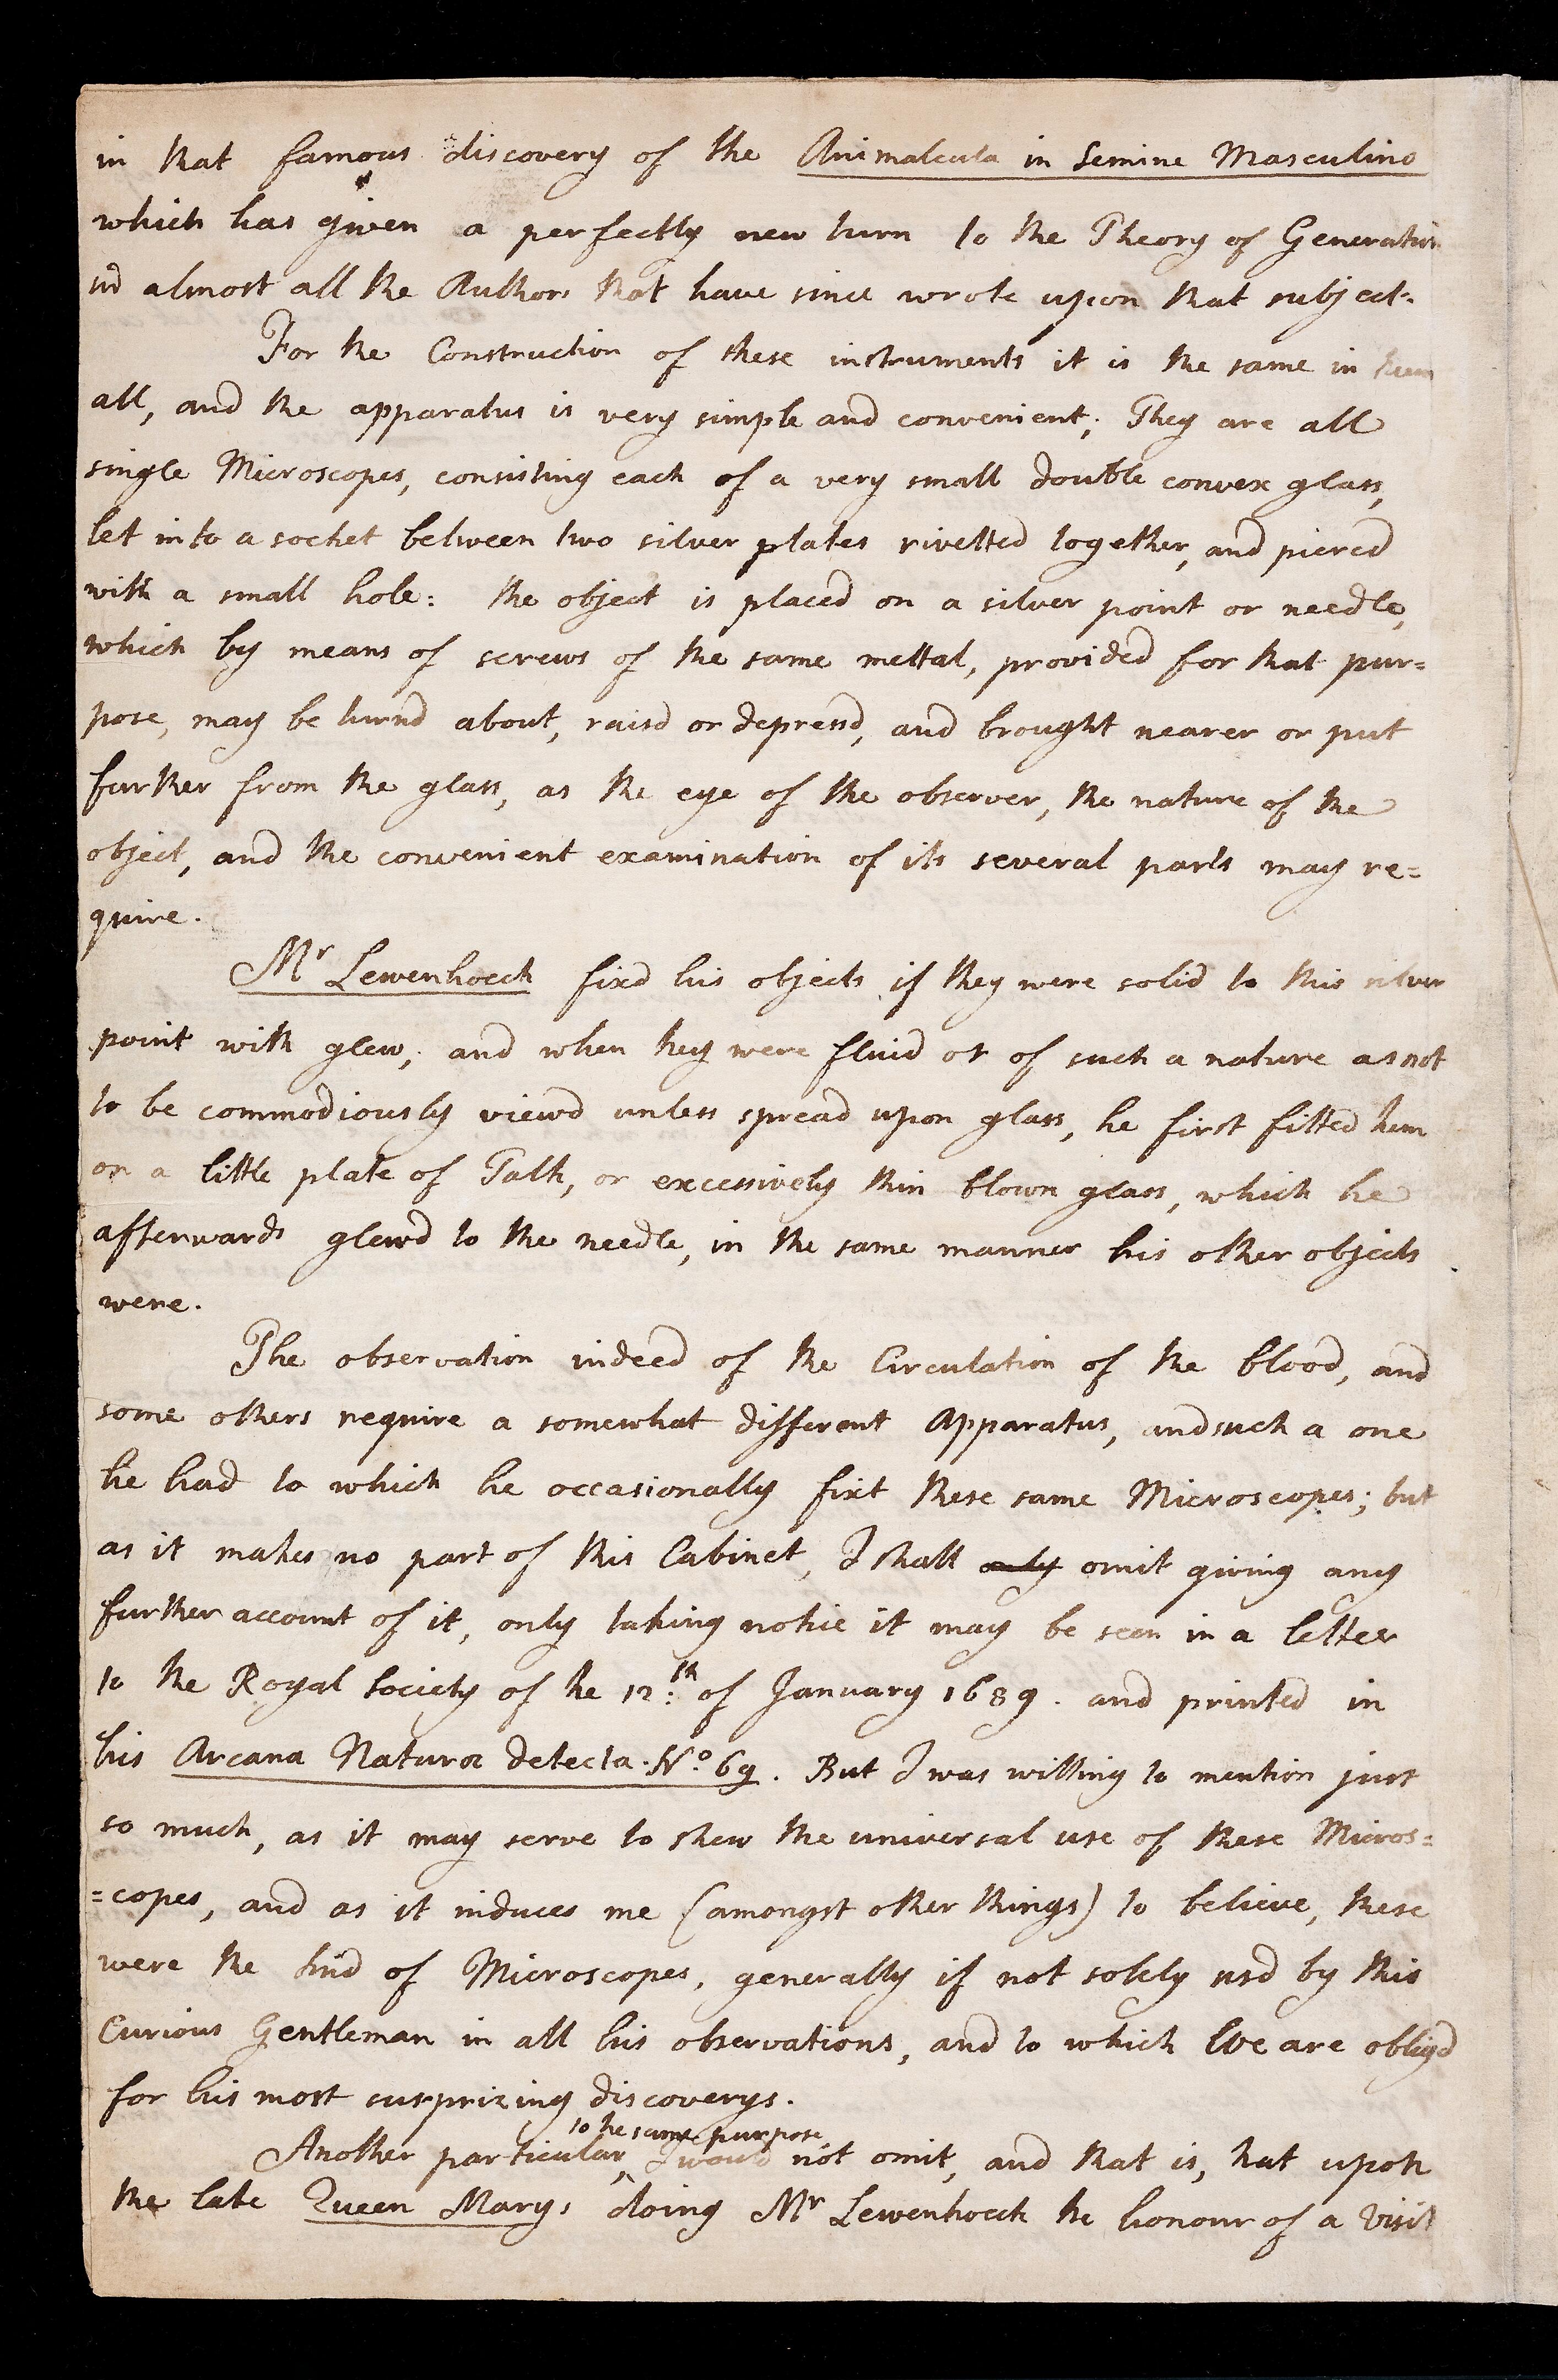 in that famous discovery of the Animalcula in Semine Masculino
which has given a perfectly new turn to the Theory of Generation
in almost all the Authors that have since wrote upon that subject.
For the Construction of these instruments it is the same in them
all, and the apparatus is very simple and convenient; They are all
single Microscopes, consisting each of a very small double convex glass,
let into a socket between two silver plates rivetted together, and pierced
with a small hole: the object is placed on a silver point or needle,
which by means of screws of the same mettal, provided for that pur=
pose, may be turnd about, raisd or depressd, and brought nearer or put
further from the glass, as the eye of the observer, the nature of the
object, and the convenient examination of its several parts may re=
quire.
Mr Lewenhoeck fixd his objects if they were solid to this silver
point with glew; and when they were fluid or of such a nature as not
to be commodiously viewd unless spread upon glass, he first fitted them
on a little plate of Talk, or excessively thin blown glass, which he
afterwards glewd to the needle, in the same manner his other objects
were.
The observation indeed of the Circulation of the blood, and
some others require a somewhat different Apparatus, and such a one
he had to which he occasionally fixt these same Microscopes; but
as it makes no part of this Cabinet, I shall only omit giving any
further account of it, only taking notice it may be seen in a letter
to the Royal Society of the 12:th of January 1689. and printed in
his Arcana Naturæ detecta. No. 69. But I was willing to mention just
so much, as it may serve to shew the universal use of these Micros=
=copes, and as it induces me (amongst other things) to believe, these
were the kind of Microscopes, generally if not solely usd by this
Curious Gentleman in all his observations, and to which We are obligd
for his most surprizing discoverys.
to the same purpose
Another particular, I would not omit, and that is, that upon
the late Queen Marys doing Mr Lewenhoeck the honour of a visit